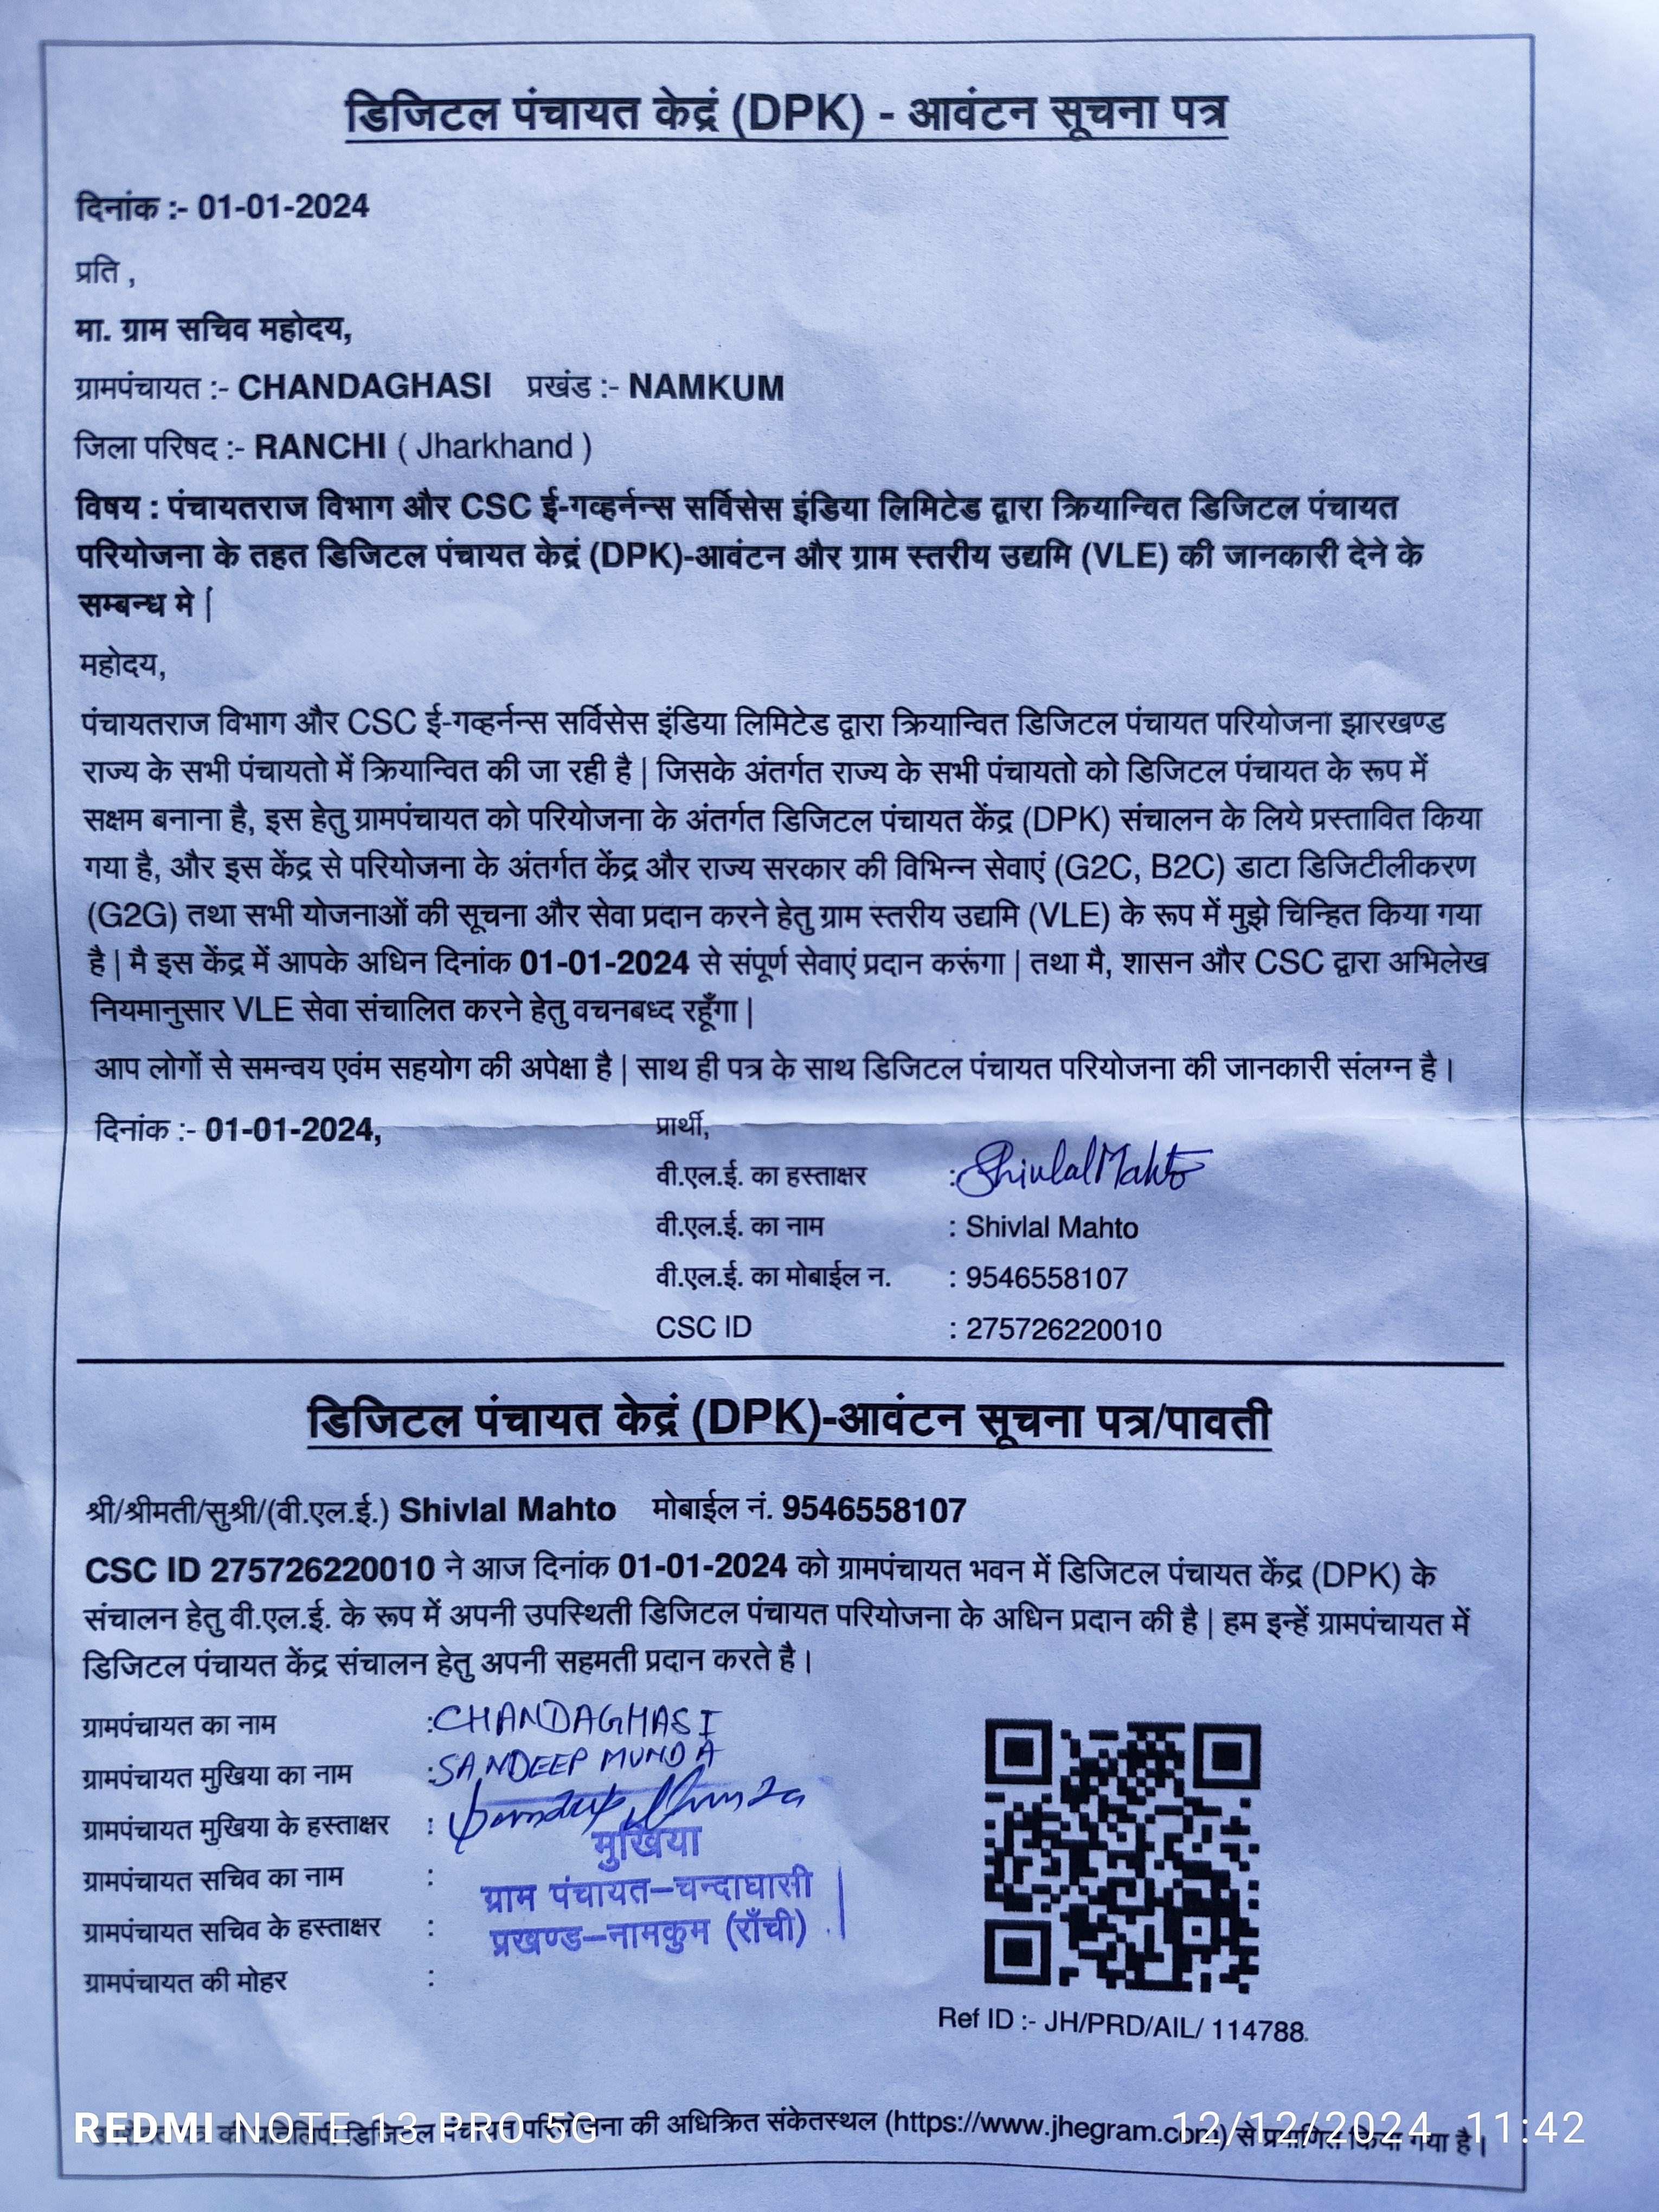 डिजिटल पंचायत केद्रं (DPK) - आवंटन सूचना पत्र
दिनांक :- 01-01-2024
प्रति ,
मा. ग्राम सचिव महोदय,
ग्रामपंचायत :- CHANDAGHASI प्रखंड :- NAMKUM
जिला परिषद :- RANCHI ( Jharkhand )
विषय : पंचायतराज विभाग और CSC ई-गव्हर्नन्स सर्विसेस इंडिया लिमिटेड द्वारा क्रियान्वित डिजिटल पंचायत
परियोजना के तहत डिजिटल पंचायत केद्रं (DPK)-आवंटन और ग्राम स्तरीय उद्यमि (VLE) की जानकारी देने के
सम्बन्ध मे |
महोदय,
पंचायतराज विभाग और CSC ई-गव्हर्नन्स सर्विसेस इंडिया लिमिटेड द्वारा क्रियान्वित डिजिटल पंचायत परियोजना झारखण्ड
राज्य के सभी पंचायतो में क्रियान्वित की जा रही है | जिसके अंतर्गत राज्य के सभी पंचायतो को डिजिटल पंचायत के रूप में
सक्षम बनाना है, इस हेतु ग्रामपंचायत को परियोजना के अंतर्गत डिजिटल पंचायत केंद्र (DPK) संचालन के लिये प्रस्तावित किया
गया है, और इस केंद्र से परियोजना के अंतर्गत केंद्र और राज्य सरकार की विभिन्न सेवाएं (G2C, B2C) डाटा डिजिटीलीकरण
(G2G) तथा सभी योजनाओं की सूचना और सेवा प्रदान करने हेतु ग्राम स्तरीय उद्यमि (VLE) के रूप में मुझे चिन्हित किया गया
है | मै इस केंद्र में आपके अधिन दिनांक 01-01-2024 से संपूर्ण सेवाएं प्रदान करूंगा | तथा मै, शासन और CSC द्वारा अभिलेख
नियमानुसार VLE सेवा संचालित करने हेतु वचनबध्द रहूँगा |
आप लोगों से समन्वय एवंम सहयोग की अपेक्षा है | साथ ही पत्र के साथ डिजिटल पंचायत परियोजना की जानकारी संलग्न है |
दिनांक :- 01-01-2024, प्रार्थी,
वी.एल.ई. का हस्ताक्षर : Shivlal Mahto
वी.एल.ई. का नाम : Shivlal Mahto
वी.एल.ई. का मोबाईल न. : 9546558107
CSC ID : 275726220010
डिजिटल पंचायत केद्रं (DPK)-आवंटन सूचना पत्र/पावती
श्री/श्रीमती/सुश्री/(वी.एल.ई.) Shivlal Mahto मोबाईल नं. 9546558107
CSC ID 275726220010 ने आज दिनांक 01-01-2024 को ग्रामपंचायत भवन में डिजिटल पंचायत केंद्र (DPK) के
संचालन हेतु वी.एल.ई. के रूप में अपनी उपस्थिती डिजिटल पंचायत परियोजना के अधिन प्रदान की है | हम इन्हें ग्रामपंचायत में
डिजिटल पंचायत केंद्र संचालन हेतु अपनी सहमती प्रदान करते है |
ग्रामपंचायत का नाम : CHANDAGHASI
ग्रामपंचायत मुखिया का नाम : SANDEEP MUNDA
ग्रामपंचायत मुखिया के हस्ताक्षर : Sandeep Munda
मुखिया
ग्रामपंचायत सचिव का नाम :
ग्राम पंचायत–चन्दाघासी
ग्रामपंचायत सचिव के हस्ताक्षर :
प्रखण्ड–नामकुम (राँची)
ग्रामपंचायत की मोहर :
Ref ID :- JH/PRD/AIL/ 114788
की डिजिटल पंचायत परियोजना की अधिक्रित संकेतस्थल (https://www.jhegram.com) से प्रमाणित किया गया है |
REDMI NOTE 13 PRO 5G 12/12/2024 11:42